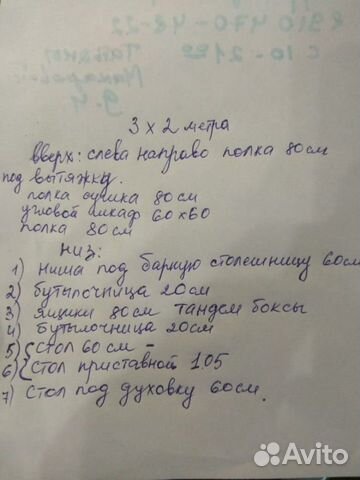 8910 470-48-22
с 10-21⁰⁰
Татьяна
9.4
3 х 2 метра
вверх: слева направо полка 80см
под вытяжку.
полка сушка 80см
угловой шкаф 60х60
полка 80см
низ:
1) ниша под барную столешницу 60см
2) бутылочница 20см
3) ящики 80см тандем боксы
4) бутылочница 20см
5) { стол 60см -
6) { стол приставной 105
7) стол под духовку 60см.
Avito